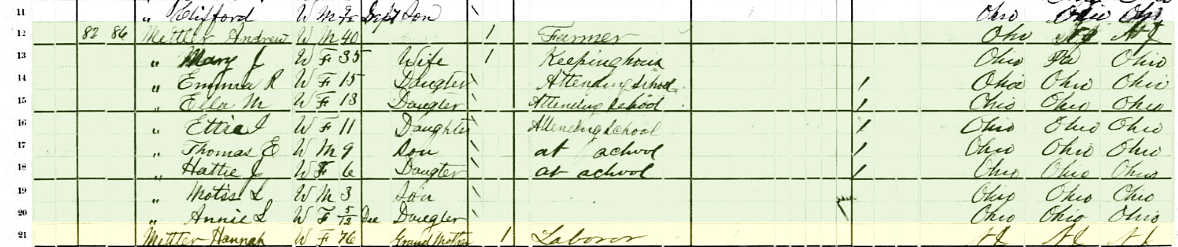 11 " Clifford W M 9/12 Sept Son Ohio Ohio Ohio
12 82 86 Mettler Andrew W M 40 1 Farmer Ohio N J N J
13 " Mary J W F 35 Wife 1 Keeping house Ohio Pa Ohio
14 " Emma R W F 15 Daugter Attending school 1 Ohio Ohio Ohio
15 " Ella M W F 13 Daugter Attending School 1 Ohio Ohio Ohio
16 " Ettie J W F 11 Daughter Attending school 1 Ohio Ohio Ohio
17 " Thomas E W M 9 Son at school 1 Ohio Ohio Ohio
18 " Hattie J W F 6 Daugter at school 1 Ohio Ohio Ohio
19 " L W M 3 Son Ohio Ohio Ohio
20 " Annie L W F 5/12 Dec Daugter Ohio Ohio Ohio
21 Mettler Hannah W F 76 Grand Mother 1 Laboror N J N J N J